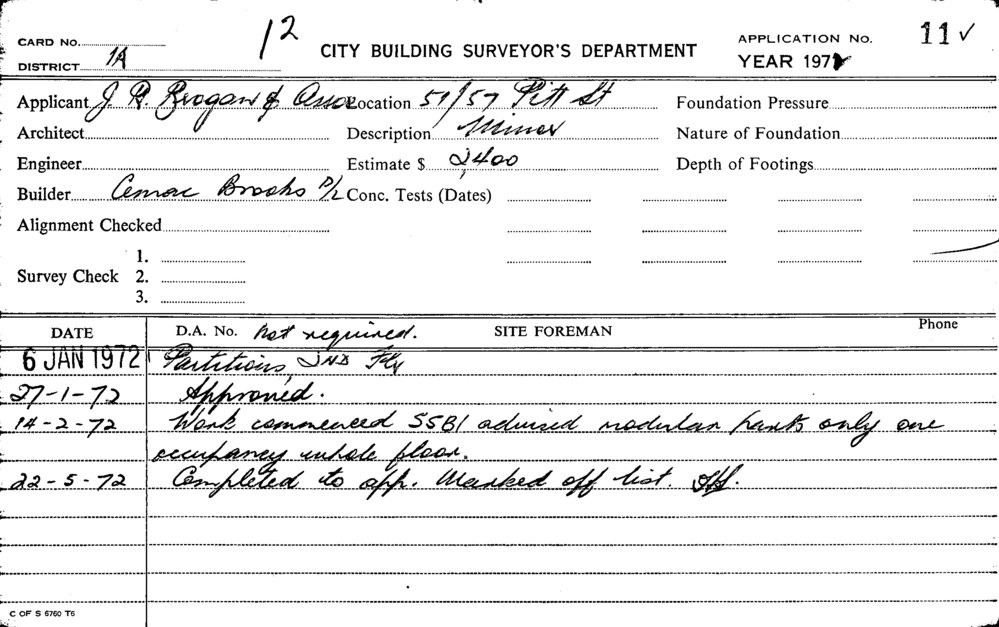 12
CARD No.
DISTRICT 1A
CITY BUILDING SURVEYOR'S DEPARTMENT
APPLICATION No. 11 ✓
YEAR 1972
Applicant J. R. Brogan & Asso Location 51/57 Pitt St Foundation Pressure
Architect Description Minor Nature of Foundation
Engineer Estimate $ 2,400 Depth of Footings
Builder Cemac Brooks P/L Conc. Tests (Dates)
Alignment Checked
Survey Check 1.
2.
3.
DATE D.A. No. Not required. SITE FOREMAN Phone
6 JAN 1972 Partitions, 2ND Flr
27-1-72 Approved.
14-2-72 Work commenced SSBI advised modular parts only one
occupancy whole floor.
22-5-72 Completed to app. Marked off list.
C OF S 6760 T6